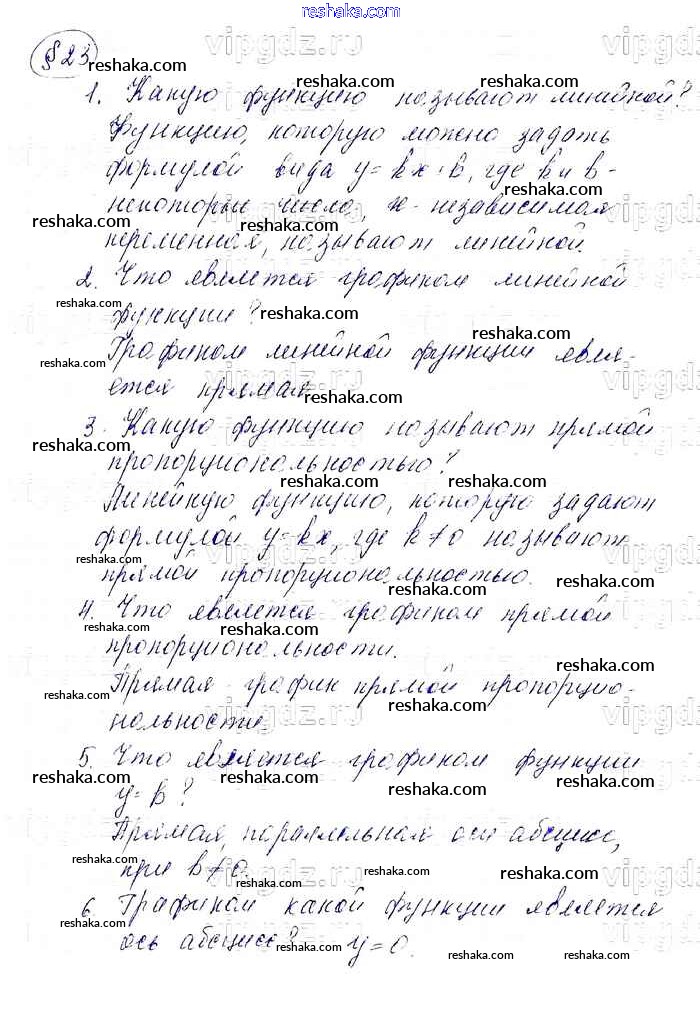 § 23
1. Какую функцию называют линейной?
Функцию, которую можно задать
формулой вида y = kx + b, где k и b -
некоторые числа, x - независимая
переменная, называют линейной.
2. Что является графиком линейной
функции?
Графиком линейной функции явля-
ется прямая
3. Какую функцию называют прямой
пропорциональностью?
Линейную функцию, которую задают
формулой y = kx, где k ≠ 0 называют
прямой пропорциональностью.
4. Что является графиком прямой
пропорциональности.
Прямая - график прямой пропорцио-
нальности
5. Что является графиком функции
y = b?
Прямая, параллельная оси абсцисс,
при b ≠ 0.
6. Графиком какой функции является
ось абсцисс? y = 0.